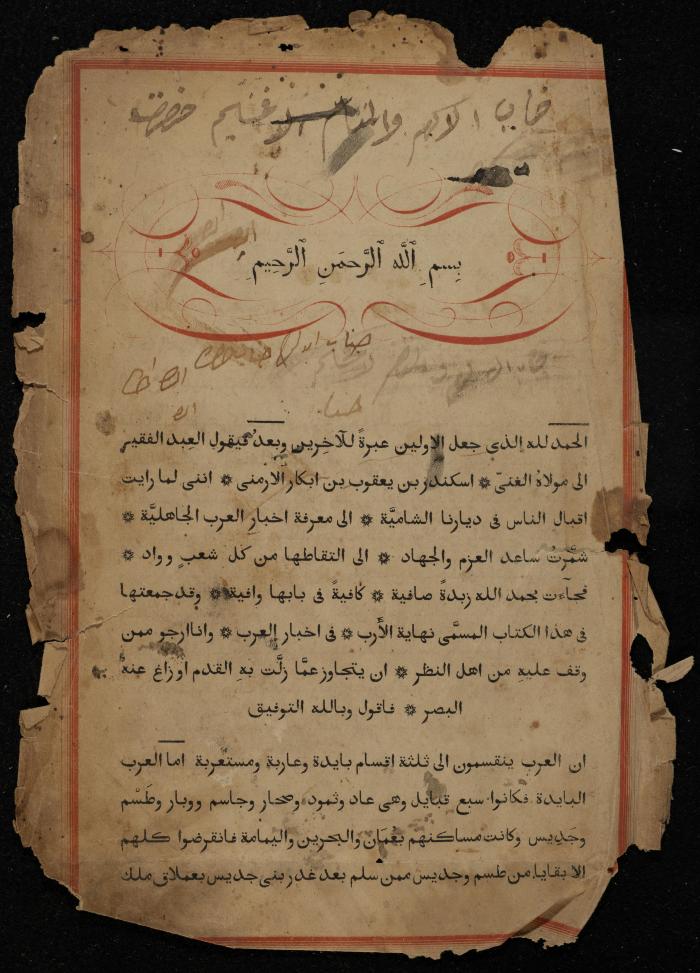 جناب الاكرم والمقام الا حضرت
بِسمِ ٱللَّه ٱلرَّحمَنِ ٱلرَّحِيمِ
جناب الاكرم
الحمد لله الذي جعل الاولين عبرةً للآخرين وبعدُ فيقول العبد الفقير
الى مولاهُ الغنىّ ❋ اسكندر بن يعقوب بن ابكار الارمنى ❋ اننى لما رايت
اقبال الناس فى ديارنا الشاميَّة ❋ الى معرفة اخبار العرب الجاهليَّة ❋
شمَّرتُ ساعد العزم والجهاد ❋ الى التقاطها من كل شعبٍ وواد ❋
فجآءت بحمد الله زبدةً صافية ❋ كافيةً فى بابها وافية ❋ وقد جمعتها
فى هذا الكتاب المسمَّى نهاية الأَرب ❋ فى اخبار العرب ❋ وانا ارجو ممن
وقف عليهِ من اهل النظر ❋ ان يتجاوز عمَّا زلَّت بهِ القدم او زاغ عنهُ
البصر ❋ فاقول وبالله التوفيق
ان العرب ينقسمون الى ثلثة اقسام بايدة وعاربة ومستعربة اما العرب
البايدة فكانوا سبع قبايل وهى عاد وثمود وصحار وجاسم ووبار وطَسْم
وجديس وكانت مساكنهم بعُمَان والبحرين واليمامة فانقرضوا كلهم
الا بقايا من طسم وجديس ممن سلم بعد غدر بنى جديس بعملاق ملك